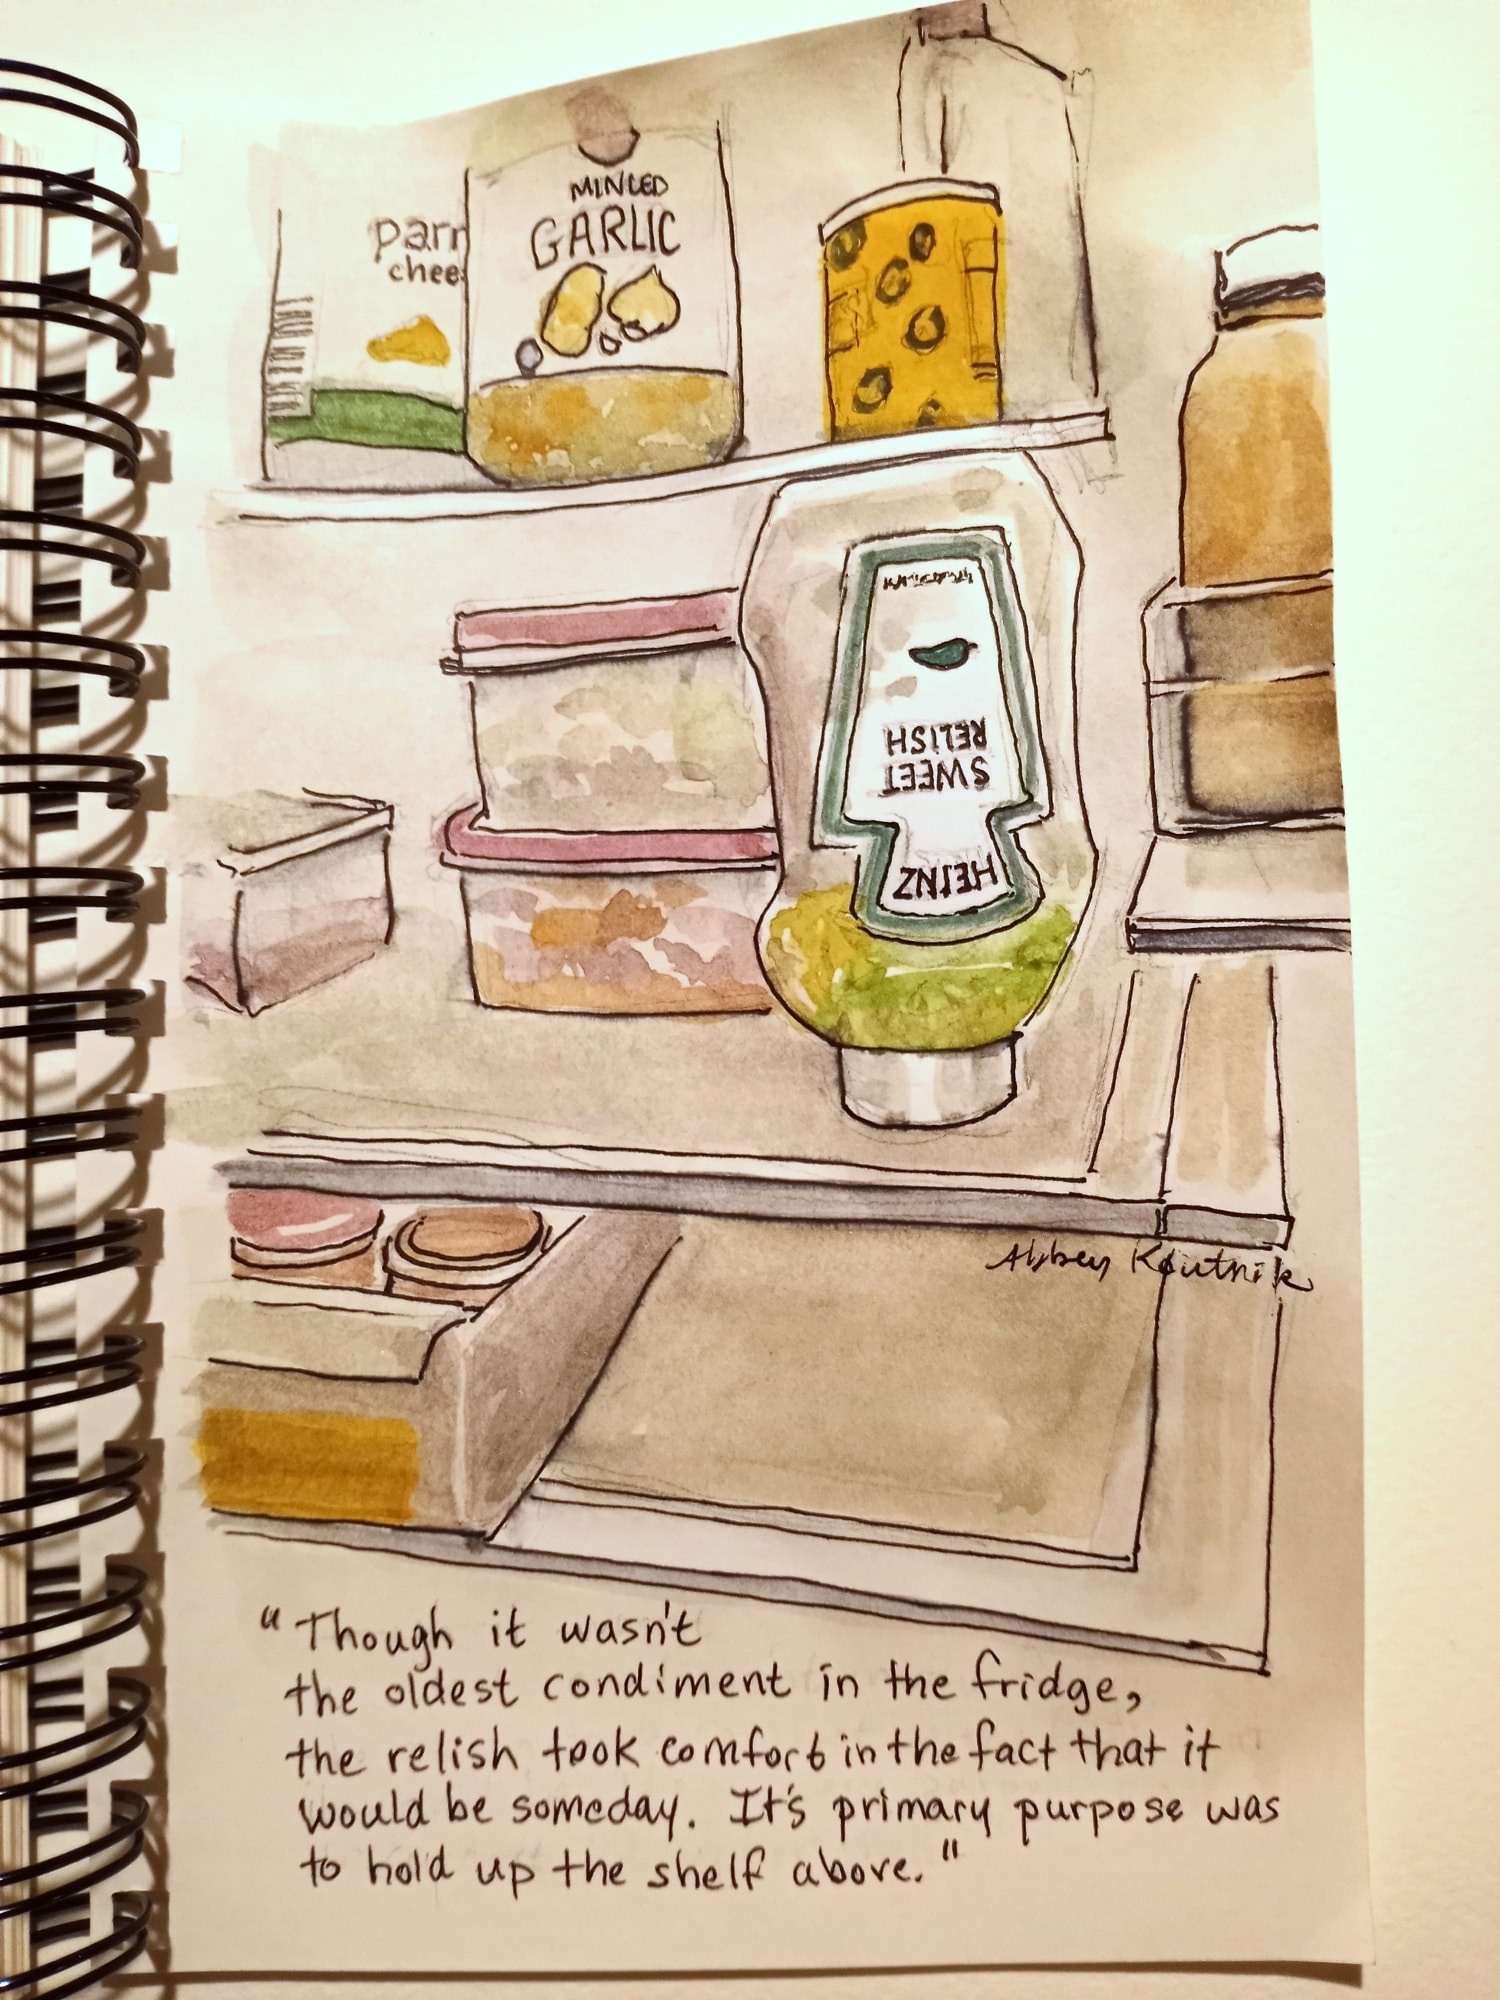 MINCED
GARLIC
parm
chee
SWEET
RELISH
HEINZ
Abbey Koutnik
"Though it wasn't
the oldest condiment in the fridge,
the relish took comfort in the fact that it
would be someday. It's primary purpose was
to hold up the shelf above."